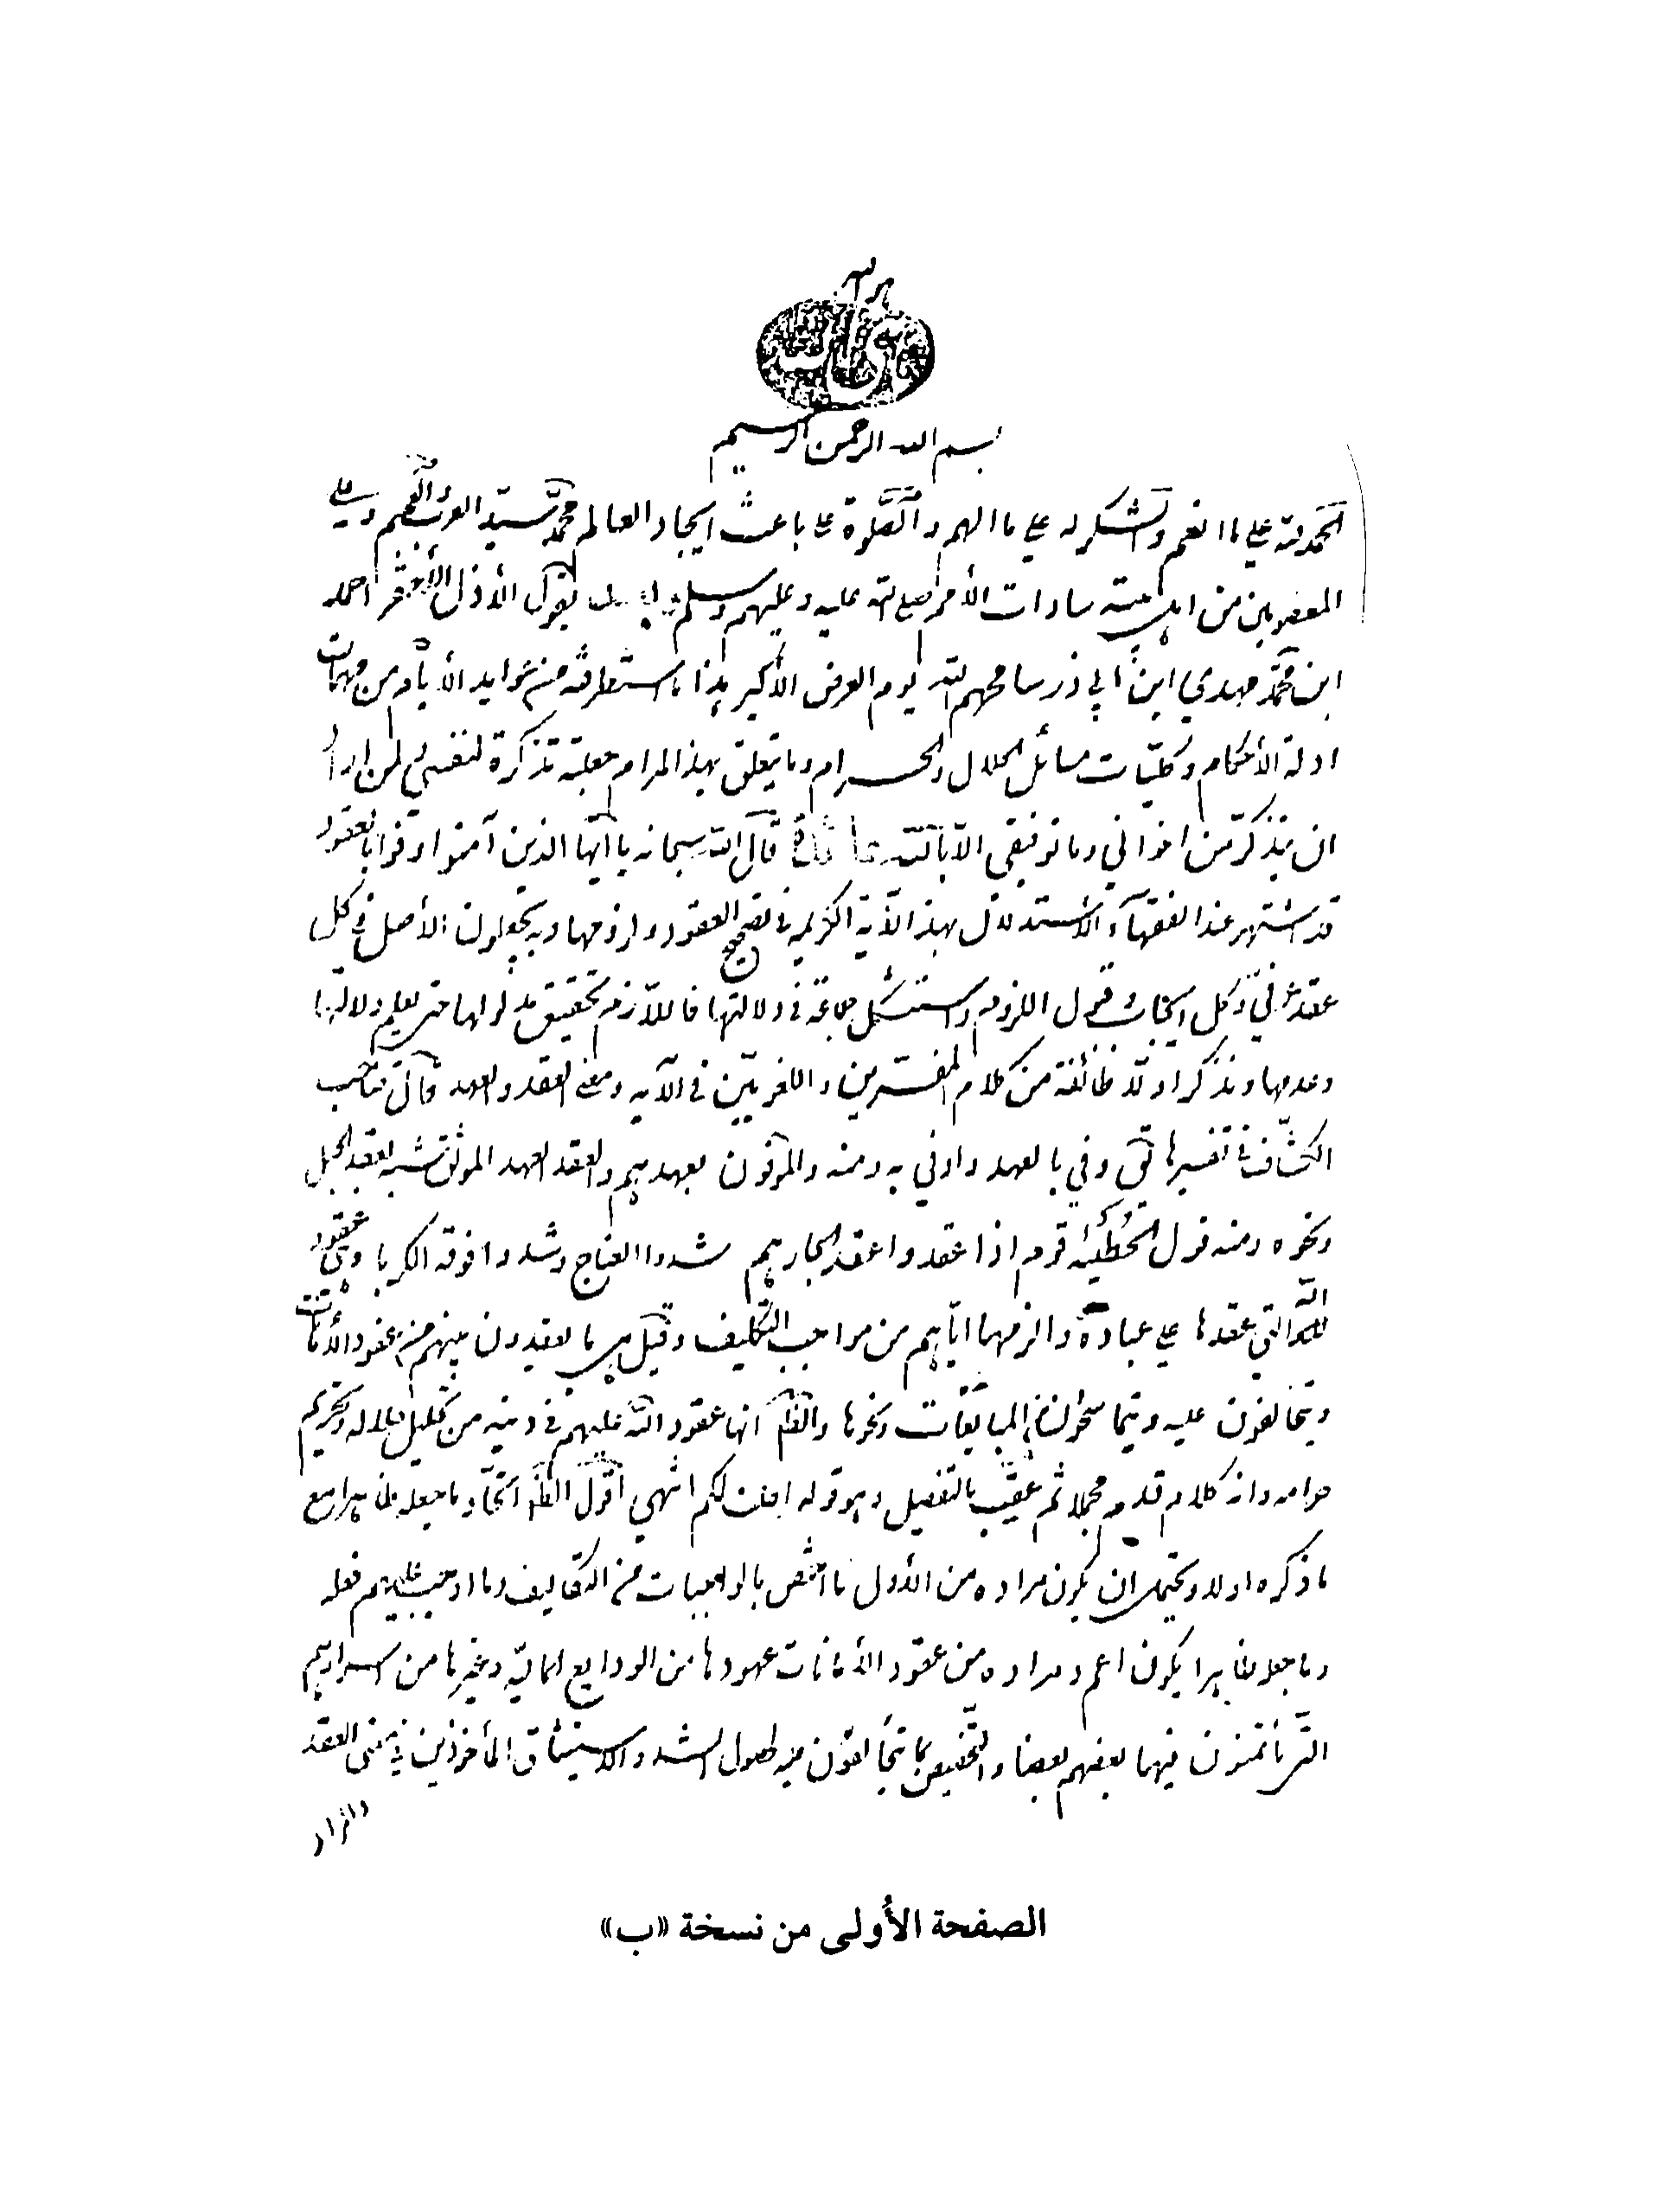 بسم الله الرحمن الرحيم
الحمد لله على ما انعم والشكر له على ما الهم والصّلوة على باعث ايجاد العالم محمّد سيّد العرب والعجم وعلى
المعصومين من اهل بيته سادات الأمم صلى الله عليه وعليهم وسلم يقول الأذل الأحقر احمد
ابن محمّد مهدي ابن ابي ذر سامحهم الله يوم العرض الأكبر هذا ما استطرفته من عوايد الأيام من مهمّات
ادلة الأحكام وكليّات مسائل الحلال والحرام وما يتعلق بهذا المرام جعلته تذكرة لنفسي ولمن اراد
ان يتذكر من اخواني وما توفيقي الّا بالله قال الله سبحانه يا ايّها الذين آمنوا اوفوا بالعقود
قد اشتهر عند الفقهاء الاستدلال بهذا الآية الكريمة في تصحيح العقود ولزومها وبه يجعلون الأصل في كل
عقد عرفي وكل ايجاب وقبول اللزوم واستشكل جماعة في دلالتها فاللّازم تحقيق مدلولها حتى يعلم دلالتها
وعدمها ونذكر اولا طائفة من كلام المفسّرين واللغويّين في الآيه ومعنى العقد والعهد قال صاحب
الكشّاف في تفسيرها يق وفي بالعهد واوفي به ومنه والموفون بعهدهم والعقد العهد الموثق شبه بعقد الحبل
ونحوه ومنه قول الحُطَيئه قوم اذا عقدوا عقدا لجارهم شدوا العناج وشدوا فوقه الكربا وهي عقود
الله التي عقدها على عباده والزمها ايّاهم من مواجب التكليف وقيل هي ما يعقدون بينهم من عقود الأمانات
ويتحالفون عليه ويتماسحون من المبايعات ونحوها والظ انها عقود الله عليهم في دينه من تحليل حلاله وتحريم
حرامه وانه كلام قدم مجملا ثم عقب بالتفصيل وهو قوله احلت لكم انتهى اقول الظ اتّحاد ما جعله ظاهرا مع
ما ذكره اولا ويحتمل ان يكون مراده من الأول ما اختص بالواجبات من التكاليف وما اوجب عليهم فعله
وما جعله ظاهرا يكون اعم ومراده من عقود الأمانات عهودها من الودايع الماليّه وغيرها من اسرارهم
التي يأتمنون فيها بعضهم بعضا والتخصيص بما يتحالفون عليه لحصول الشد والاستيثاق المأخوذين في معنى العقد
والمراد
الصفحة الأولى من نسخة «ب»